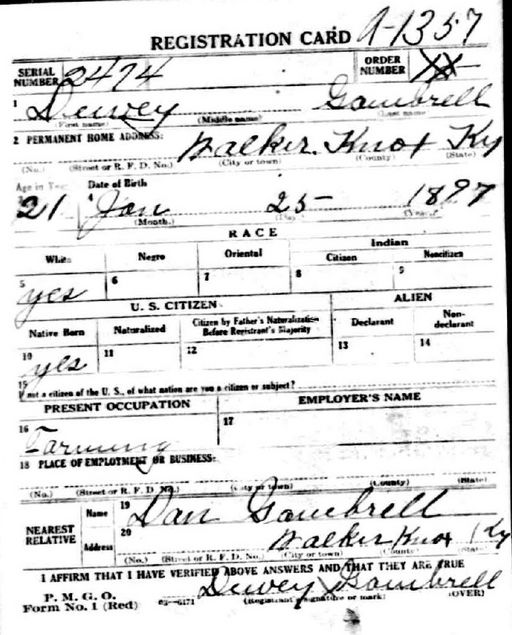 REGISTRATION CARD A-1357
SERIAL NUMBER 2474 ORDER NUMBER XX
1 Dewey Gambrell
(First name) (Middle name) (Last name)
2 PERMANENT HOME ADDRESS: Walker Knox Ky
(No.) (Street or R. F. D. No.) (City or town) (County) (State)
Age in Years Date of Birth
21 4 Jan 25 1897
(Month.) (Day.) (Year.)
RACE
White Negro Oriental Indian
Citizen Noncitizen
5 yes 6 7 8 9
U. S. CITIZEN ALIEN
Native Born Naturalized Citizen by Father's Naturalization Before Registrant's Majority Declarant Non-declarant
10 yes 11 12 13 14
15 If not a citizen of the U. S., of what nation are you a citizen or subject?
PRESENT OCCUPATION EMPLOYER'S NAME
16 Farming 17
18 PLACE OF EMPLOYMENT OR BUSINESS:
(No.) (Street or R. F. D. No.) (City or town) (County) (State)
NEAREST RELATIVE Name 19 Dan Gambrell
Address 20 Walker Knox Ky
(No.) (Street or R. F. D. No.) (City or town) (County) (State)
I AFFIRM THAT I HAVE VERIFIED ABOVE ANSWERS AND THAT THEY ARE TRUE
P. M. G. O. Dewey Gambrell
Form No. 1 (Red) 03-6171 (Registrant's signature or mark) (OVER)